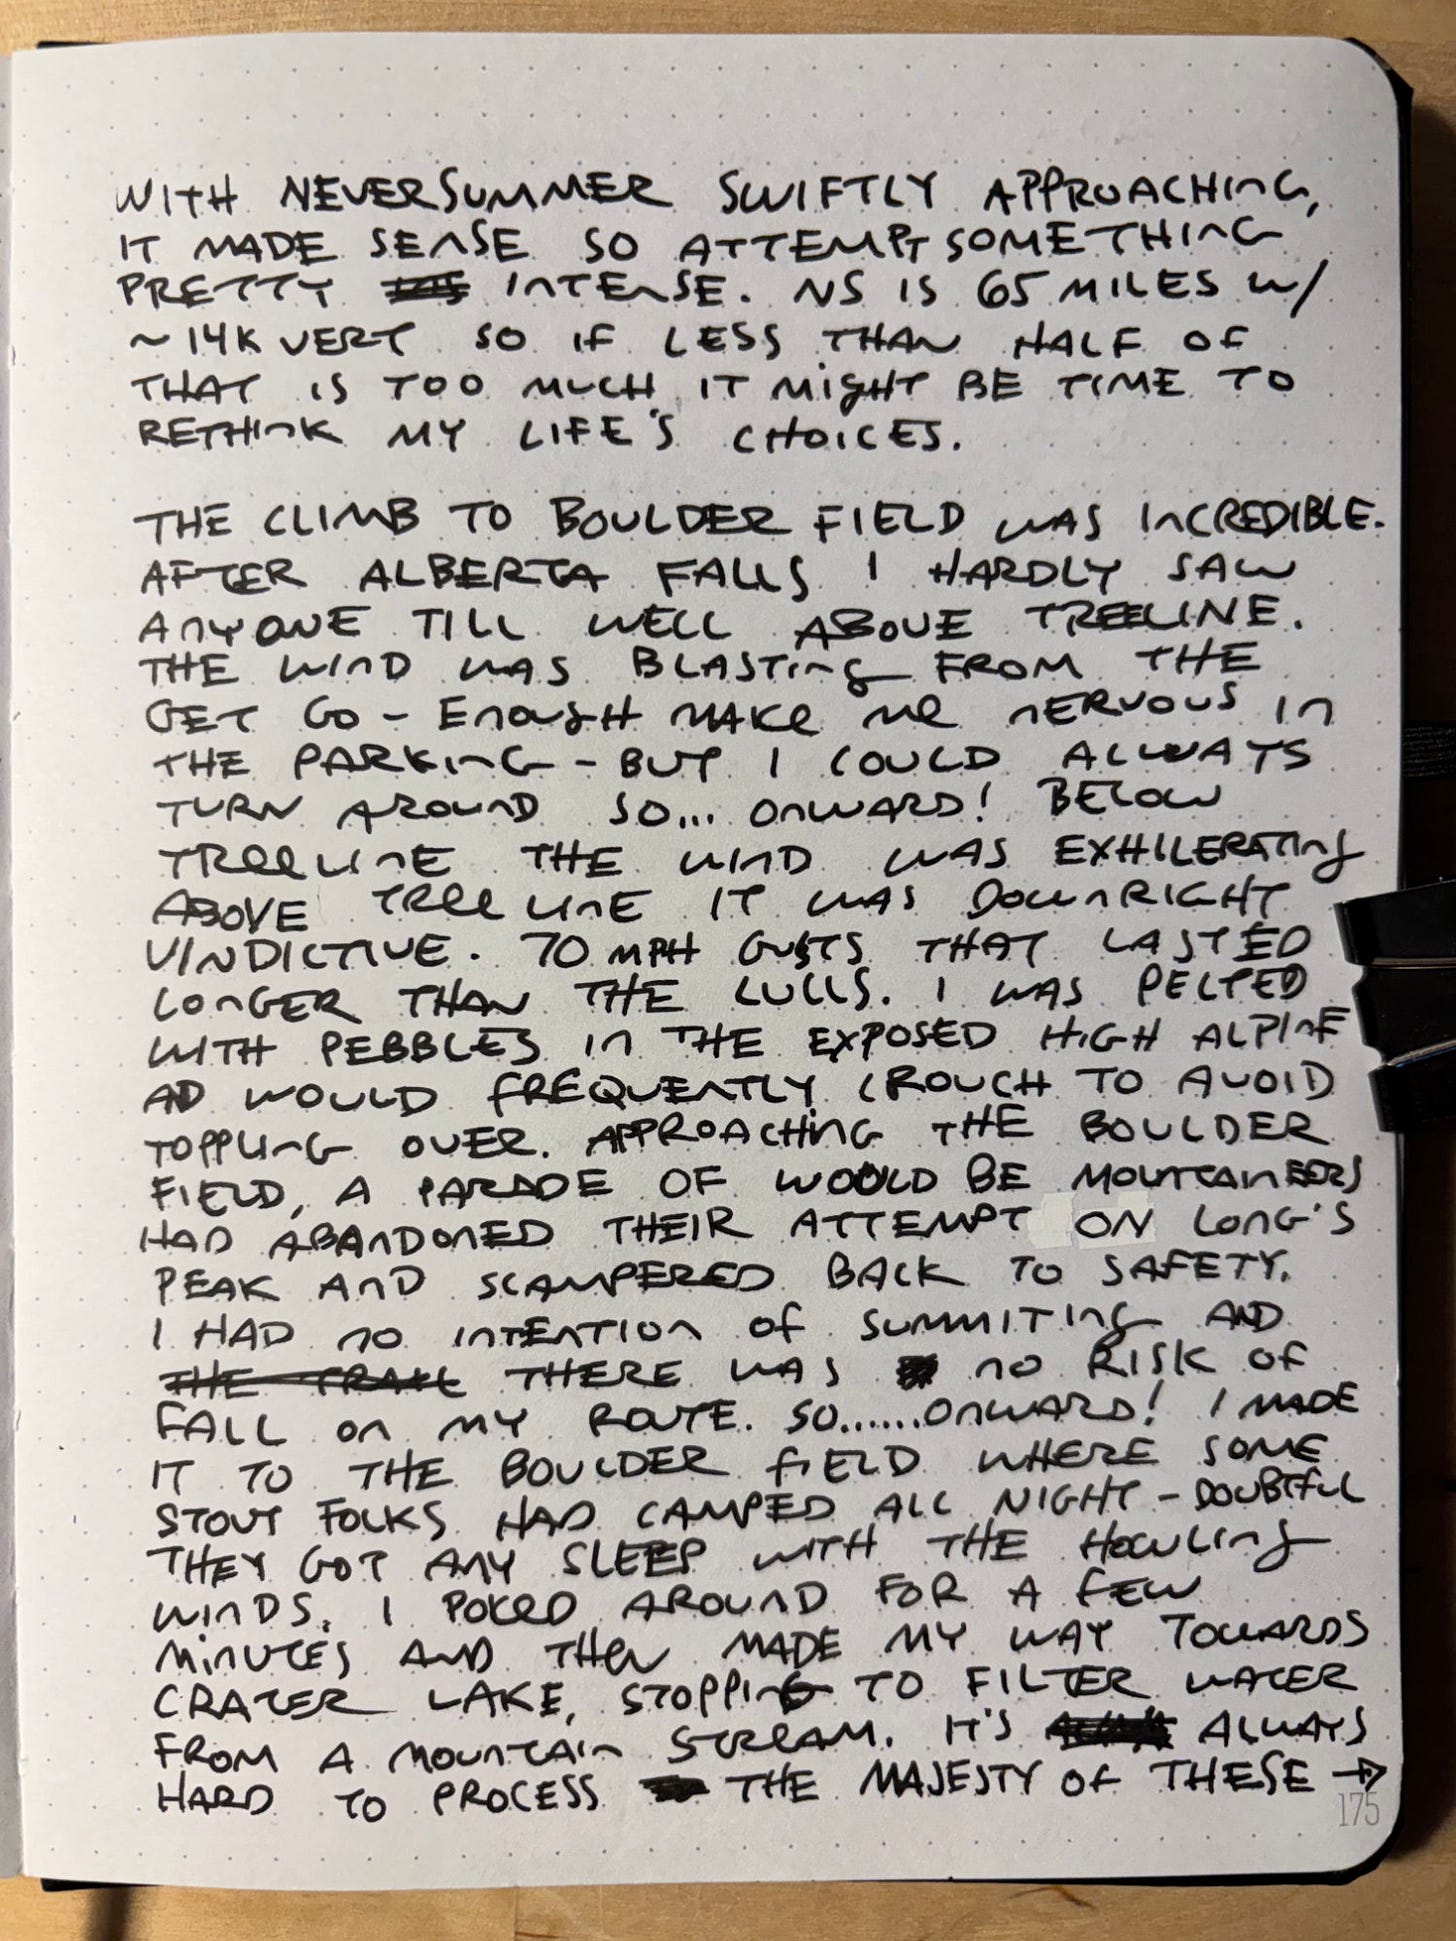 WITH NEVERSUMMER SWIFTLY APPROACHING,
IT MADE SENSE SO ATTEMPT SOMETHING
PRETTY INTENSE. NS IS 65 MILES W/
~14K VERT SO IF LESS THAN HALF OF
THAT IS TOO MUCH IT MIGHT BE TIME TO
RETHINK MY LIFE'S CHOICES.
THE CLIMB TO BOULDER FIELD WAS INCREDIBLE.
AFTER ALBERTA FALLS I HARDLY SAW
ANYONE TILL WELL ABOVE TREELINE.
THE WIND WAS BLASTING FROM THE
GET GO - ENOUGH MAKE ME NERVOUS IN
THE PARKING - BUT I COULD ALWAYS
TURN AROUND SO... ONWARD! BELOW
TREELINE THE WIND WAS EXHILERATING
ABOVE TREELINE IT WAS DOWNRIGHT
VINDICTIVE. 70 MPH GUSTS THAT LASTED
LONGER THAN THE LULLS. I WAS PELTED
WITH PEBBLES IN THE EXPOSED HIGH ALPINE
AD WOULD FREQUENTLY CROUCH TO AVOID
TOPPLING OVER. APPROACHING THE BOULDER
FIELD, A PARADE OF WOULD BE MOUNTAINEERS
HAD ABANDONED THEIR ATTEMPT ON LONG'S
PEAK AND SCAMPERED BACK TO SAFETY.
I HAD NO INTENTION OF SUMMITING AND
THE TRAIL THERE WAS NO RISK OF
FALL ON MY ROUTE. SO......ONWARD! I MADE
IT TO THE BOULDER FIELD WHERE SOME
STOUT FOLKS HAD CAMPED ALL NIGHT - DOUBTFUL
THEY GOT ANY SLEEP WITH THE HOWLING
WINDS. I POKED AROUND FOR A FEW
MINUTES AND THEN MADE MY WAY TOWARDS
CRATER LAKE, STOPPING TO FILTER WATER
FROM A MOUNTAIN STREAM. IT'S ALWAYS
HARD TO PROCESS THE MAJESTY OF THESE →
175